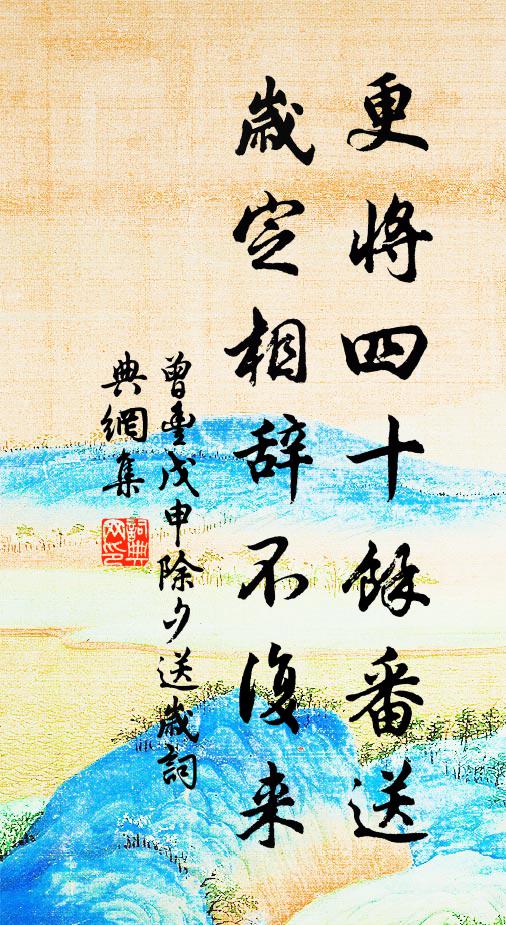 更將四十餘番送
歲定相辞不復来
曾豊戊申除夕送歲詞
典網集
詞典
网印